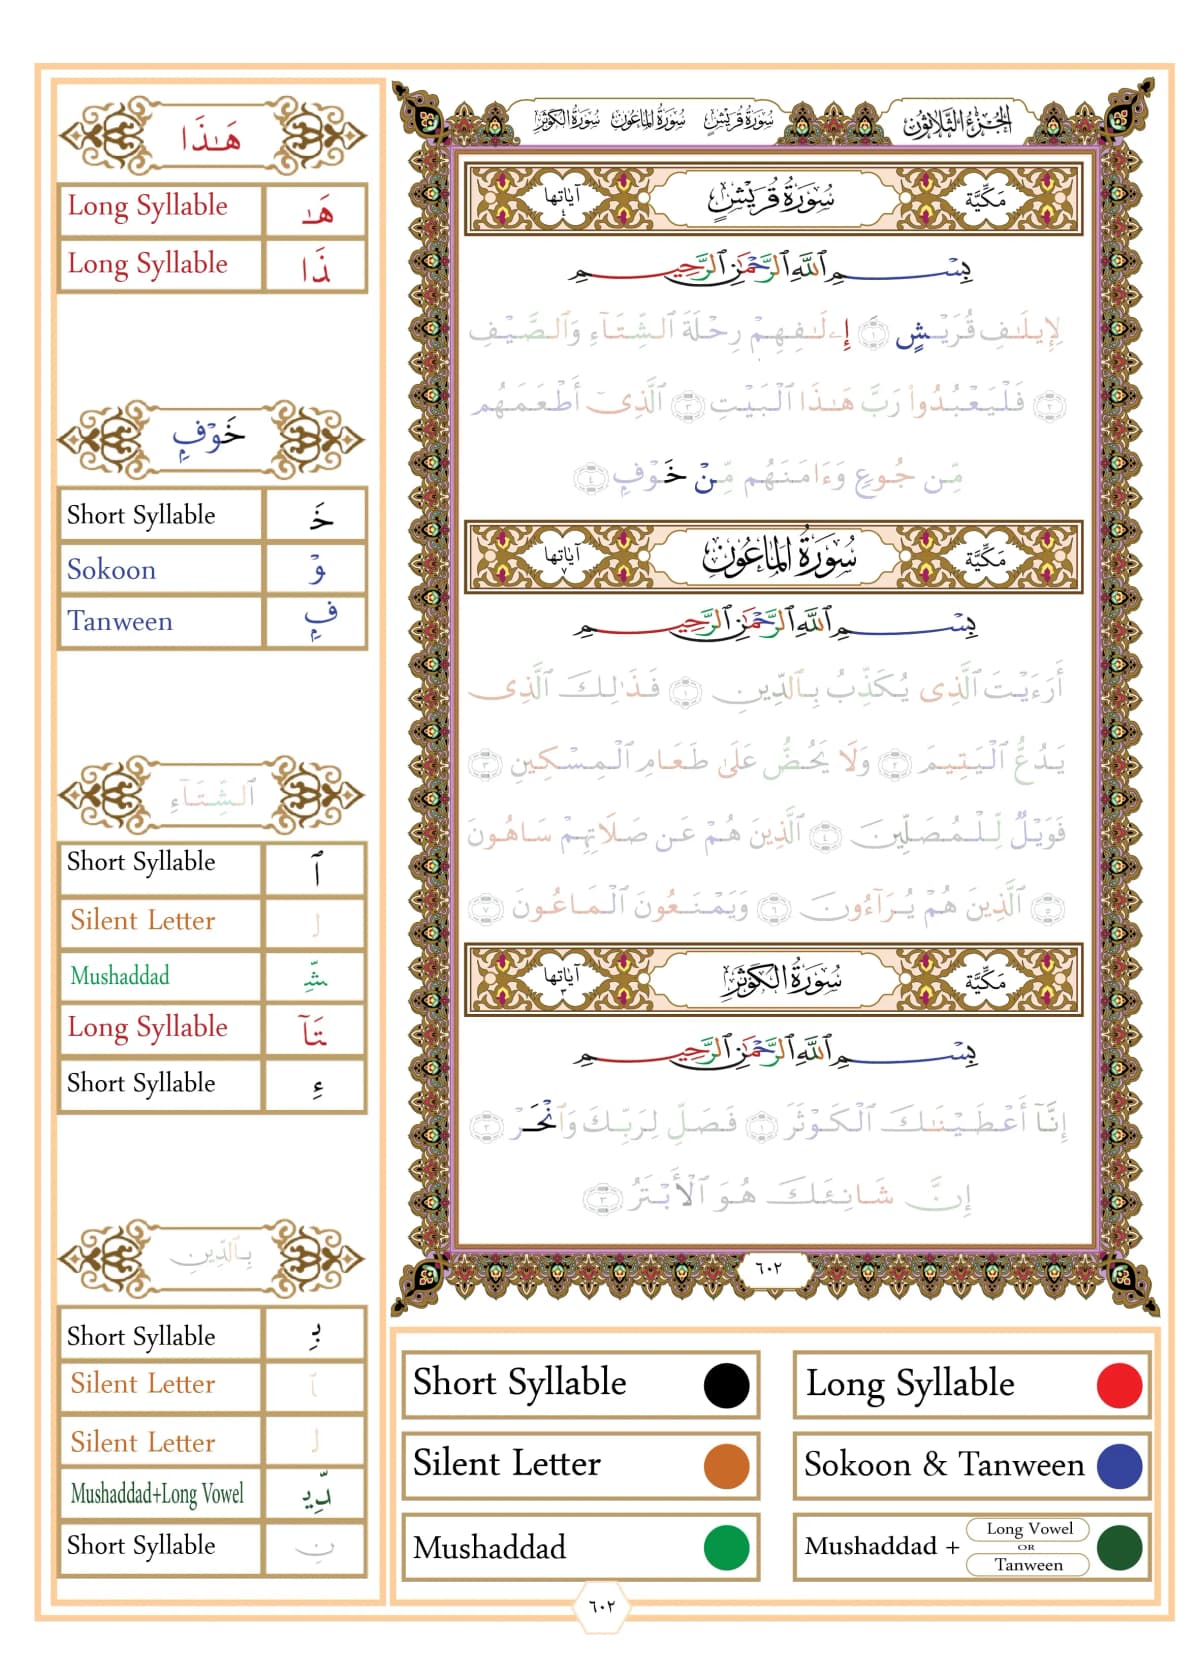 الجزء الثلاثون
سورة قريش سورة الماعون سورة الكوثر
مَكِّيَّة
سُورَةُ قُرَيْشٍ
آياتها ٤
بِسْمِ ٱللَّهِ ٱلرَّحْمَـٰنِ ٱلرَّحِيمِ
لِإِيلَـٰفِ قُرَيْشٍ ١ إِۦلَـٰفِهِمْ رِحْلَةَ ٱلشِّتَآءِ وَٱلصَّيْفِ
٢ فَلْيَعْبُدُوا۟ رَبَّ هَـٰذَا ٱلْبَيْتِ ٣ ٱلَّذِىٓ أَطْعَمَهُم
مِّن جُوعٍ وَءَامَنَهُم مِّنْ خَوْفٍ ٤
مَكِّيَّة
سُورَةُ الْمَاعُون
آياتها ٧
بِسْمِ ٱللَّهِ ٱلرَّحْمَـٰنِ ٱلرَّحِيمِ
أَرَءَيْتَ ٱلَّذِى يُكَذِّبُ بِٱلدِّينِ ١ فَذَٰلِكَ ٱلَّذِى
يَدُعُّ ٱلْيَتِيمَ ٢ وَلَا يَحُضُّ عَلَىٰ طَعَامِ ٱلْمِسْكِينِ ٣
فَوَيْلٌ لِّلْمُصَلِّينَ ٤ ٱلَّذِينَ هُمْ عَن صَلَاتِهِمْ سَاهُونَ
٥ ٱلَّذِينَ هُمْ يُرَآءُونَ ٦ وَيَمْنَعُونَ ٱلْمَاعُونَ ٧
مَكِّيَّة
سُورَةُ الْكَوْثَر
آياتها ٣
بِسْمِ ٱللَّهِ ٱلرَّحْمَـٰنِ ٱلرَّحِيمِ
إِنَّآ أَعْطَيْنَـٰكَ ٱلْكَوْثَرَ ١ فَصَلِّ لِرَبِّكَ وَٱنْحَرْ ٢
إِنَّ شَانِئَكَ هُوَ ٱلْأَبْتَرُ ٣
٦٠٢
هَـٰذَا
Long Syllable هَـٰ
Long Syllable ذَا
خَوْفٍ
Short Syllable خَ
Sokoon وْ
Tanween فٍ
ٱلشِّتَآءِ
Short Syllable ٱ
Silent Letter لـ
Mushaddad شِّ
Long Syllable تَآ
Short Syllable ءِ
بِٱلدِّينِ
Short Syllable بِـ
Silent Letter ٱ
Silent Letter لـ
Mushaddad+Long Vowel دِّيـ
Short Syllable نِ
Short Syllable
Long Syllable
Silent Letter
Sokoon & Tanween
Mushaddad
Mushaddad + Long Vowel OR Tanween
٦٠٢